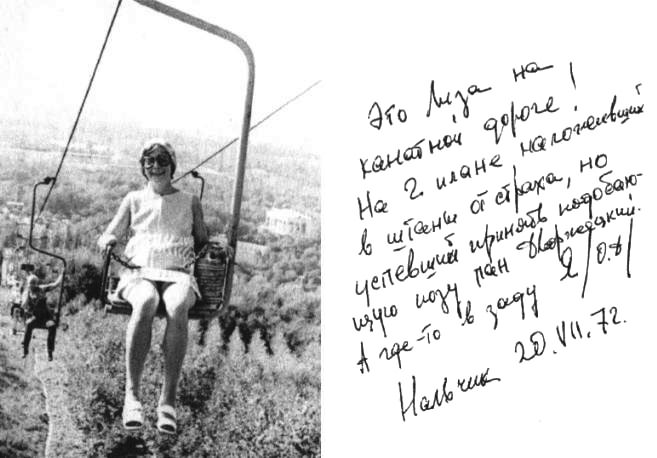 Это Лиза на
канатной дороге!
На 2 плане наложивший
в штаны от страха, но
успевший принять подобаю-
щую позу пан Дворжецкий.
А где-то в заду Я /О.Д/
Нальчик 20.VII.72.